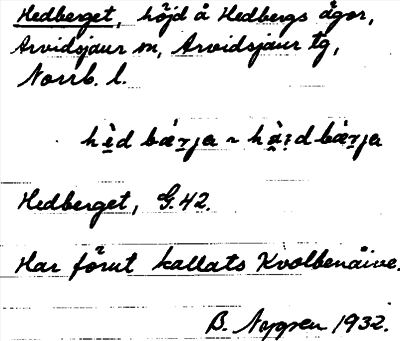 Hedberget, höjd å Hedbergs ägor,
Arvidsjaur sn, Arvidsjaur tg,
Norrb. l.
Hedberget, G. 42.
Har förut kallats Kvolbenåive.
B. Nygren 1932.